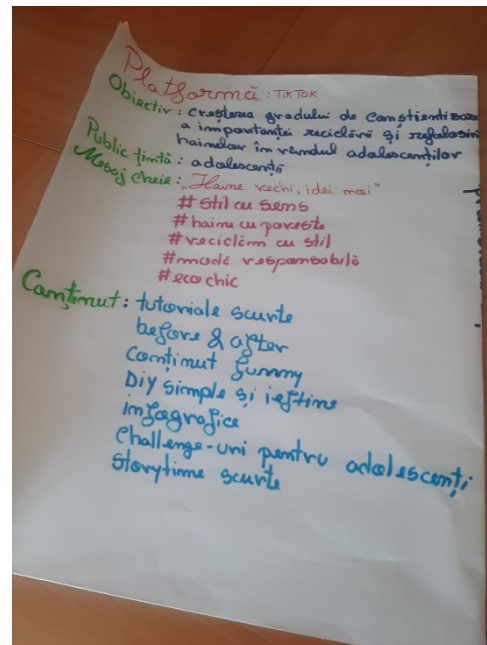 Platformă: TikTok
Obiectiv: creșterea gradului de conștientizare
a importanței reciclării și refolosirii
hainelor în rândul adolescenților
Public țintă: adolescenții
Mesaj cheie: „Haine vechi, idei noi”
#stil cu sens
#haine cu poveste
#reciclăm cu stil
#modă responsabilă
#eco chic
Conținut: tutoriale scurte
before & after
conținut funny
DIY simple și ieftine
infografice
challenge-uri pentru adolescenți
storytime scurte